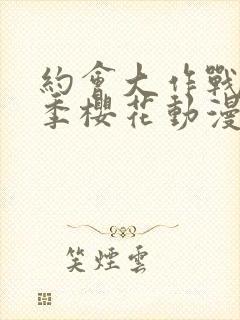 約會大作戰
季櫻花動漫
笑煙雲